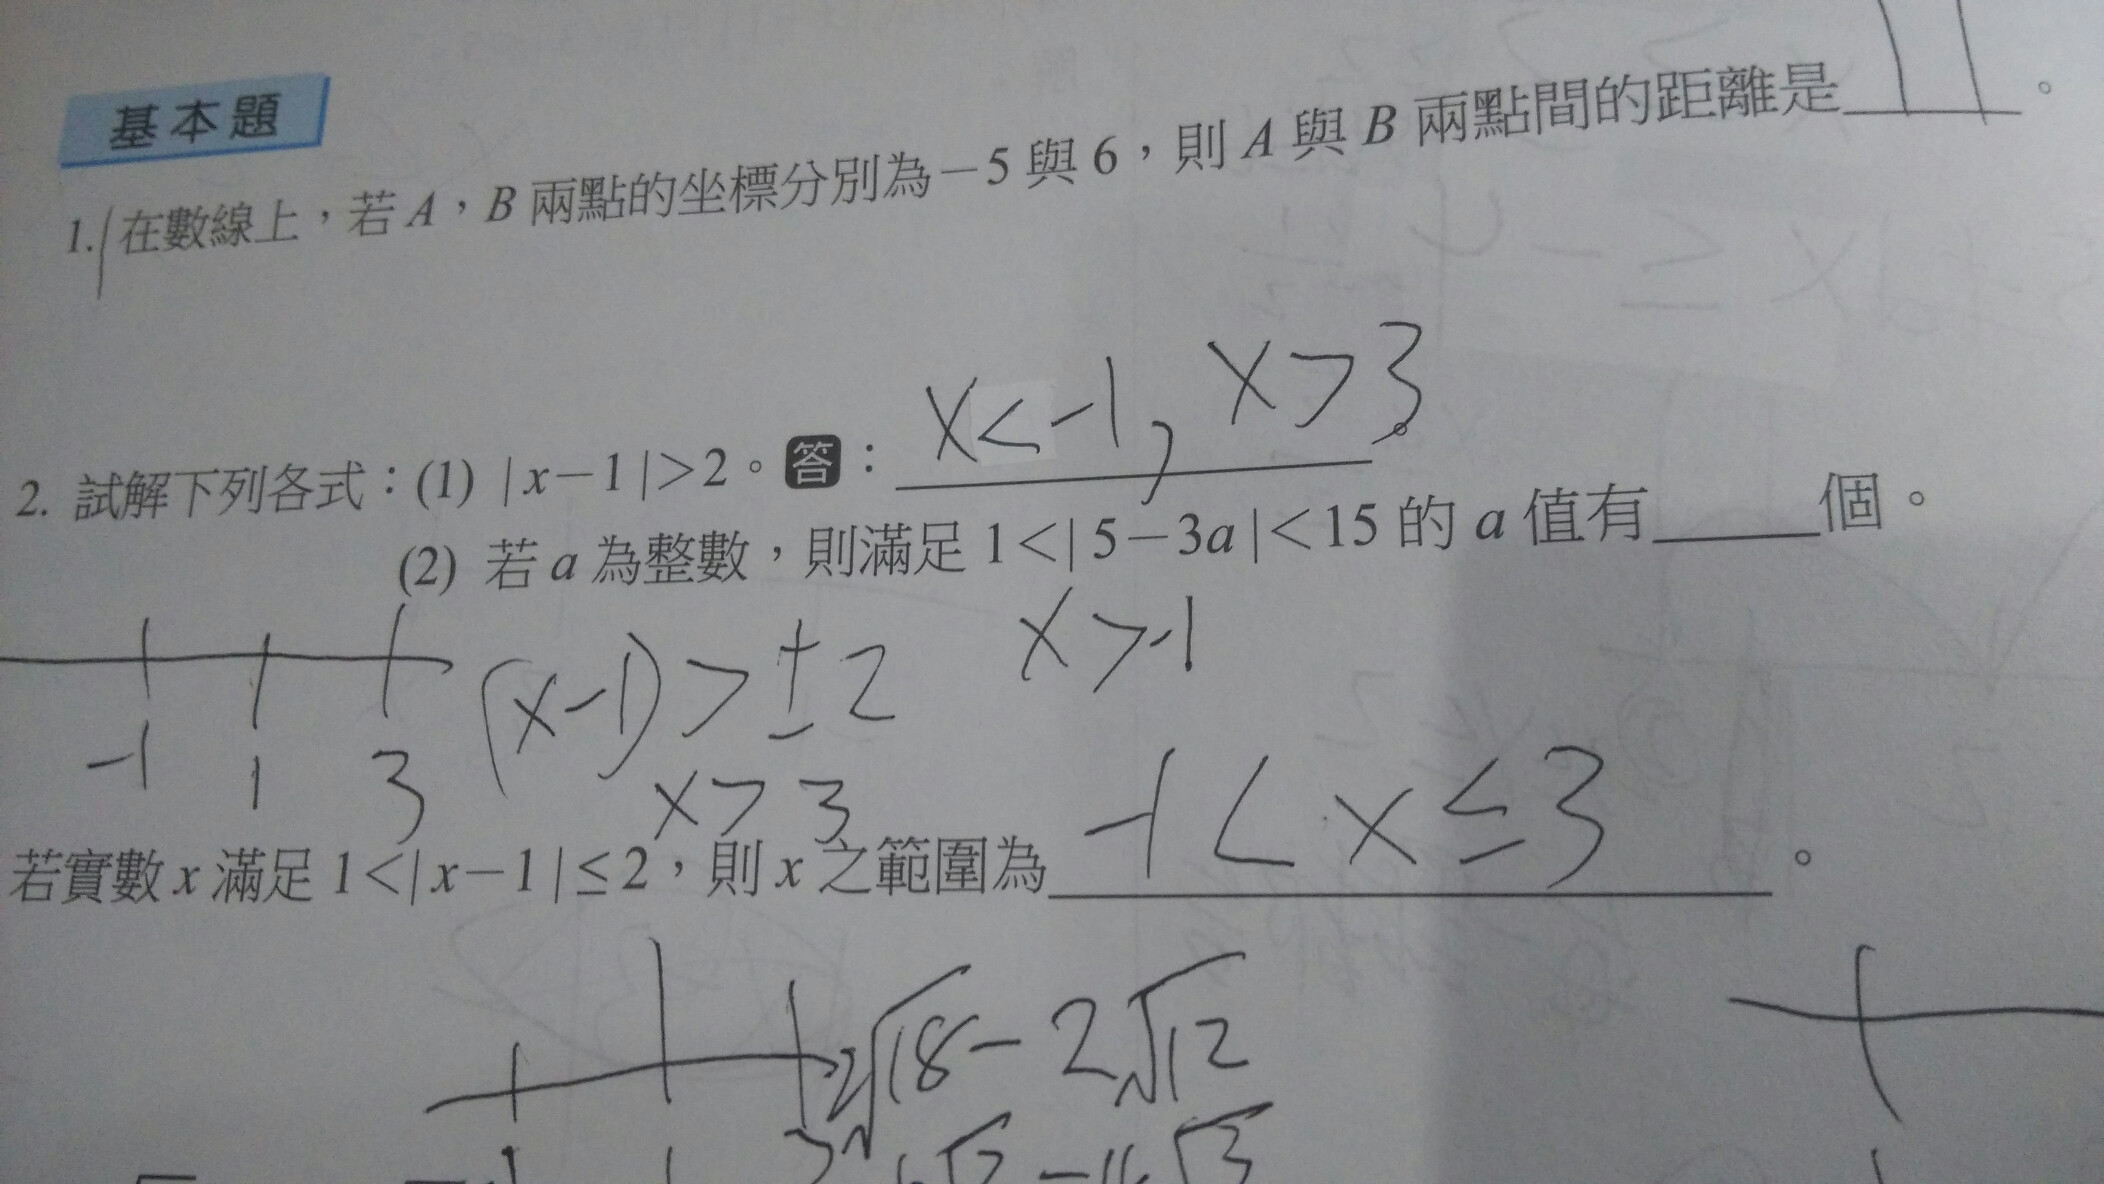 基本題
1. 在數線上，若A，B兩點的坐標分別為－5與6，則A與B兩點間的距離是 11 。
2. 試解下列各式：(1) |x－1|>2。答： x<-1, x>3 。
(2) 若a為整數，則滿足1<|5－3a|<15的a值有____個。
(x-1)>±2 x>-1
-1 1 3
x>3
若實數x滿足1<|x－1|≤2，則x之範圍為 -1<x≤3 。
2√18-2√12